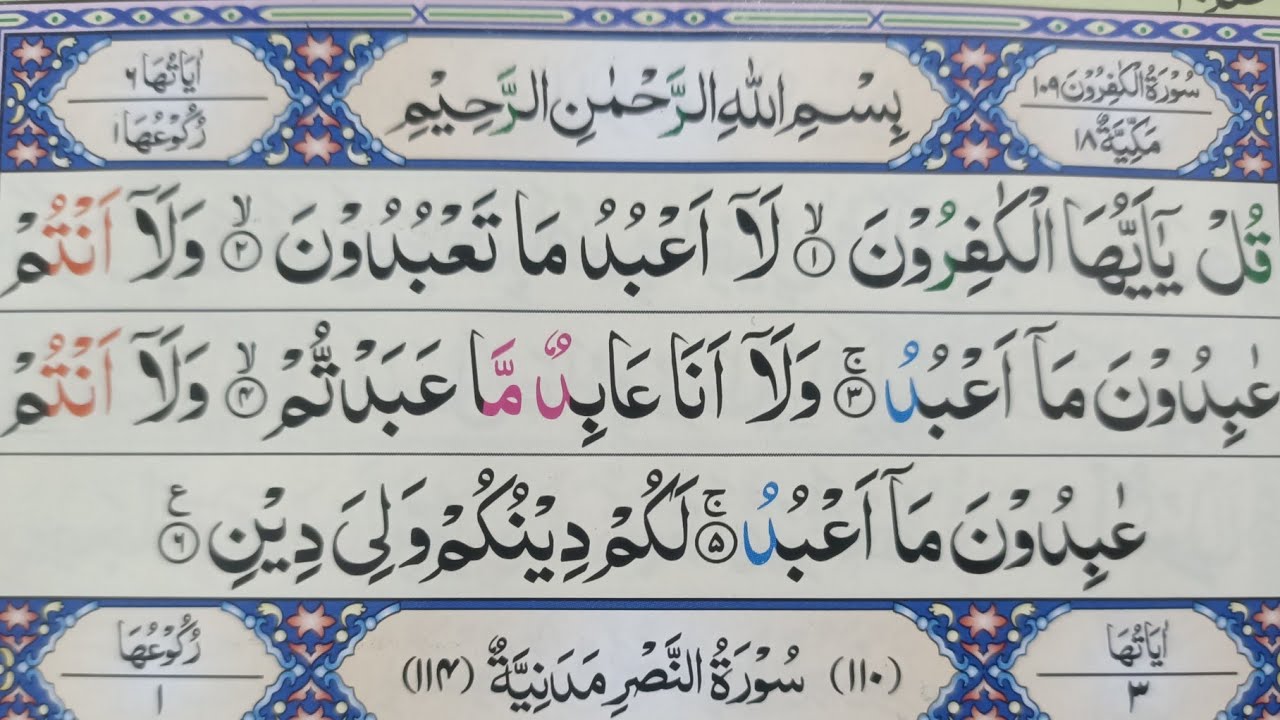 سُوْرَةُ الْكٰفِرُوْنَ ١٠٩
مَكِّيَّةٌ ١٨
بِسْمِ اللّٰهِ الرَّحْمٰنِ الرَّحِيْمِ
اٰيَاتُهَا ٦
رُكُوْعُهَا ١
قُلْ يٰۤاَيُّهَا الْكٰفِرُوْنَ ۙ﴿١﴾ لَاۤ اَعْبُدُ مَا تَعْبُدُوْنَ ۙ﴿٢﴾ وَلَاۤ اَنْتُمْ
عٰبِدُوْنَ مَاۤ اَعْبُدُ ۚ﴿٣﴾ وَلَاۤ اَنَا عَابِدٌ مَّا عَبَدْتُّمْ ۙ﴿۴﴾ وَلَاۤ اَنْتُمْ
عٰبِدُوْنَ مَاۤ اَعْبُدُ ۚ﴿۵﴾ لَكُمْ دِيْنُكُمْ وَلِيَ دِيْنِ ﴿٦﴾ ع
اٰيَاتُهَا ٣
(١١٠) سُوْرَةُ النَّصْرِ مَدَنِيَّةٌ (١١۴)
رُكُوْعُهَا ١